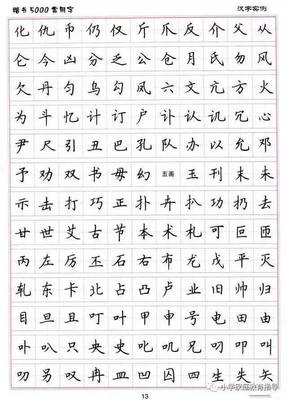 楷书5000常用字 汉字实例
化 仇 币 仍 仅 斤 爪 反 介 父 从
仑 今 凶 分 乏 公 仓 月 氏 勿 风
欠 丹 匀 乌 勾 凤 六 文 亢 方 火
为 斗 忆 计 订 户 讣 认 讥 冗 心
尹 尺 引 丑 巴 孔 队 办 以 允 邓
予 劝 双 书 毋 幻 五画 玉 刊 末 未
示 击 打 巧 正 扑 卉 扒 功 扔 去
甘 世 艾 古 节 本 术 札 可 叵 匝
丙 左 厉 丕 石 右 布 龙 戊 平 灭
轧 东 卡 北 占 凸 卢 业 旧 帅 归
目 旦 且 叮 叶 甲 申 号 电 田 由
卟 叭 只 央 史 叱 叽 兄 叼 叩 叫
叻 另 叹 冉 皿 凹 囚 四 生 失 矢
13
小学家庭教育指导